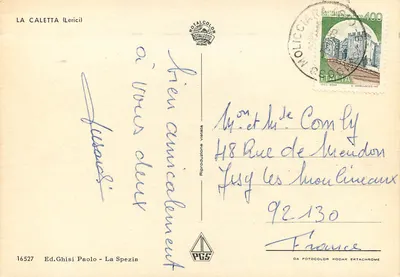 LA CALETTA (Lerici)
ROTALCOLOR
MOLICCIARA
400
bien amicalement
à vous deux
Riproduzione vietata
Mon et Mde Comly
48 Rue de Meudon
Issy les Moulineaux
92130
France
16527 Ed. Ghisi Paolo - La Spezia
PGS
DA FOTOCOLOR KODAK EKTACHROME